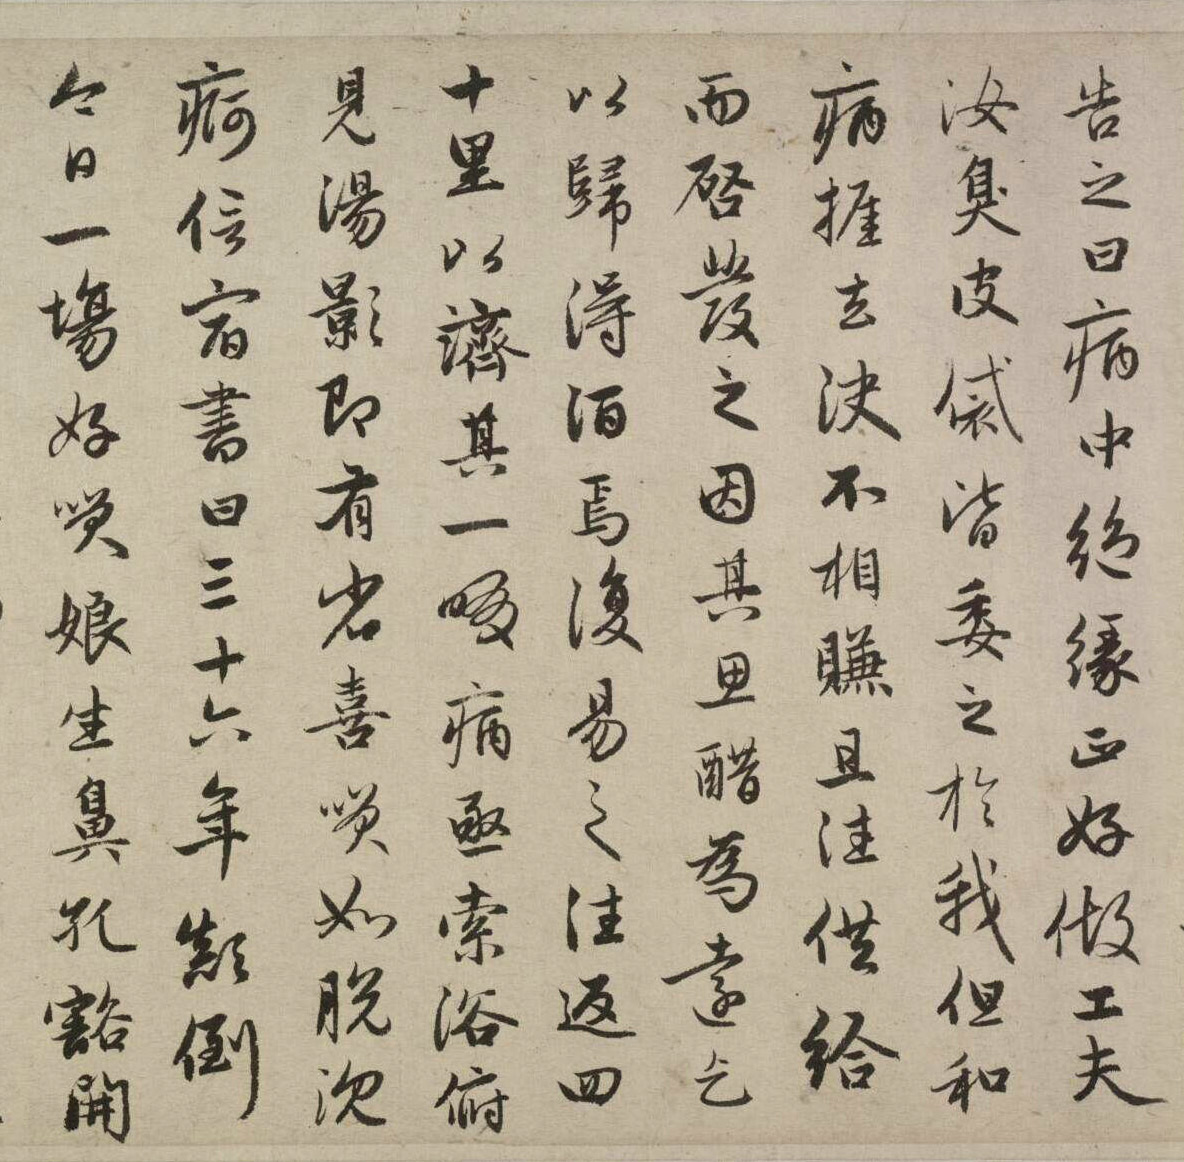 告之曰病中絶緣正好做工夫
汝臭皮袋皆委之於我但和
病捱去決不相賺且往供給
而啓發之因其思醋為遠乞
以歸得酒焉復易之往返四
十里以濟其一啜病亟索浴俯
見湯影即有省喜笑如脫沉
痾信宿書曰三十六年顛倒
今日一場好笑娘生鼻孔豁開